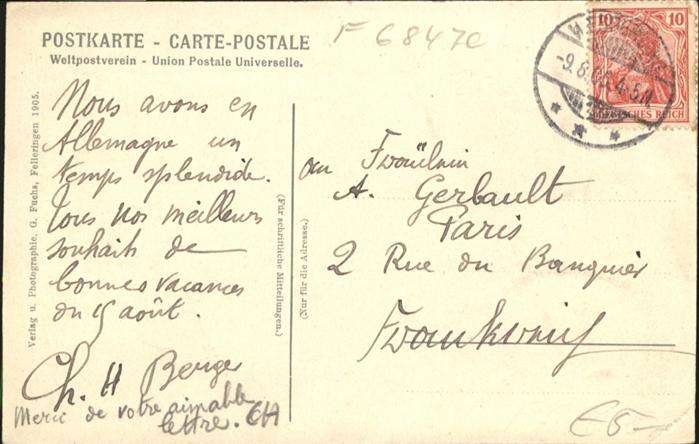 POSTKARTE - CARTE-POSTALE
Weltpostverein - Union Postale Universelle.
F 6847C
10 10
DEUTSCHES REICH
-9.8.06.4-5N.
Verlag u. Photographie, G. Fuchs, Felleringen 1905.
Nous avons en
Allemagne un
temps splendide.
Tous nos meilleurs
souhaits de
bonnes vacances
du 15 août.
Ch. H Berger
Merci de votre aimable
lettre. CH
(Für schriftliche Mitteilungen.)
(Nur für die Adresse.)
an Fraülein
A. Gerbault
Paris
2 Rue du Banquier
Frankreich
€5-